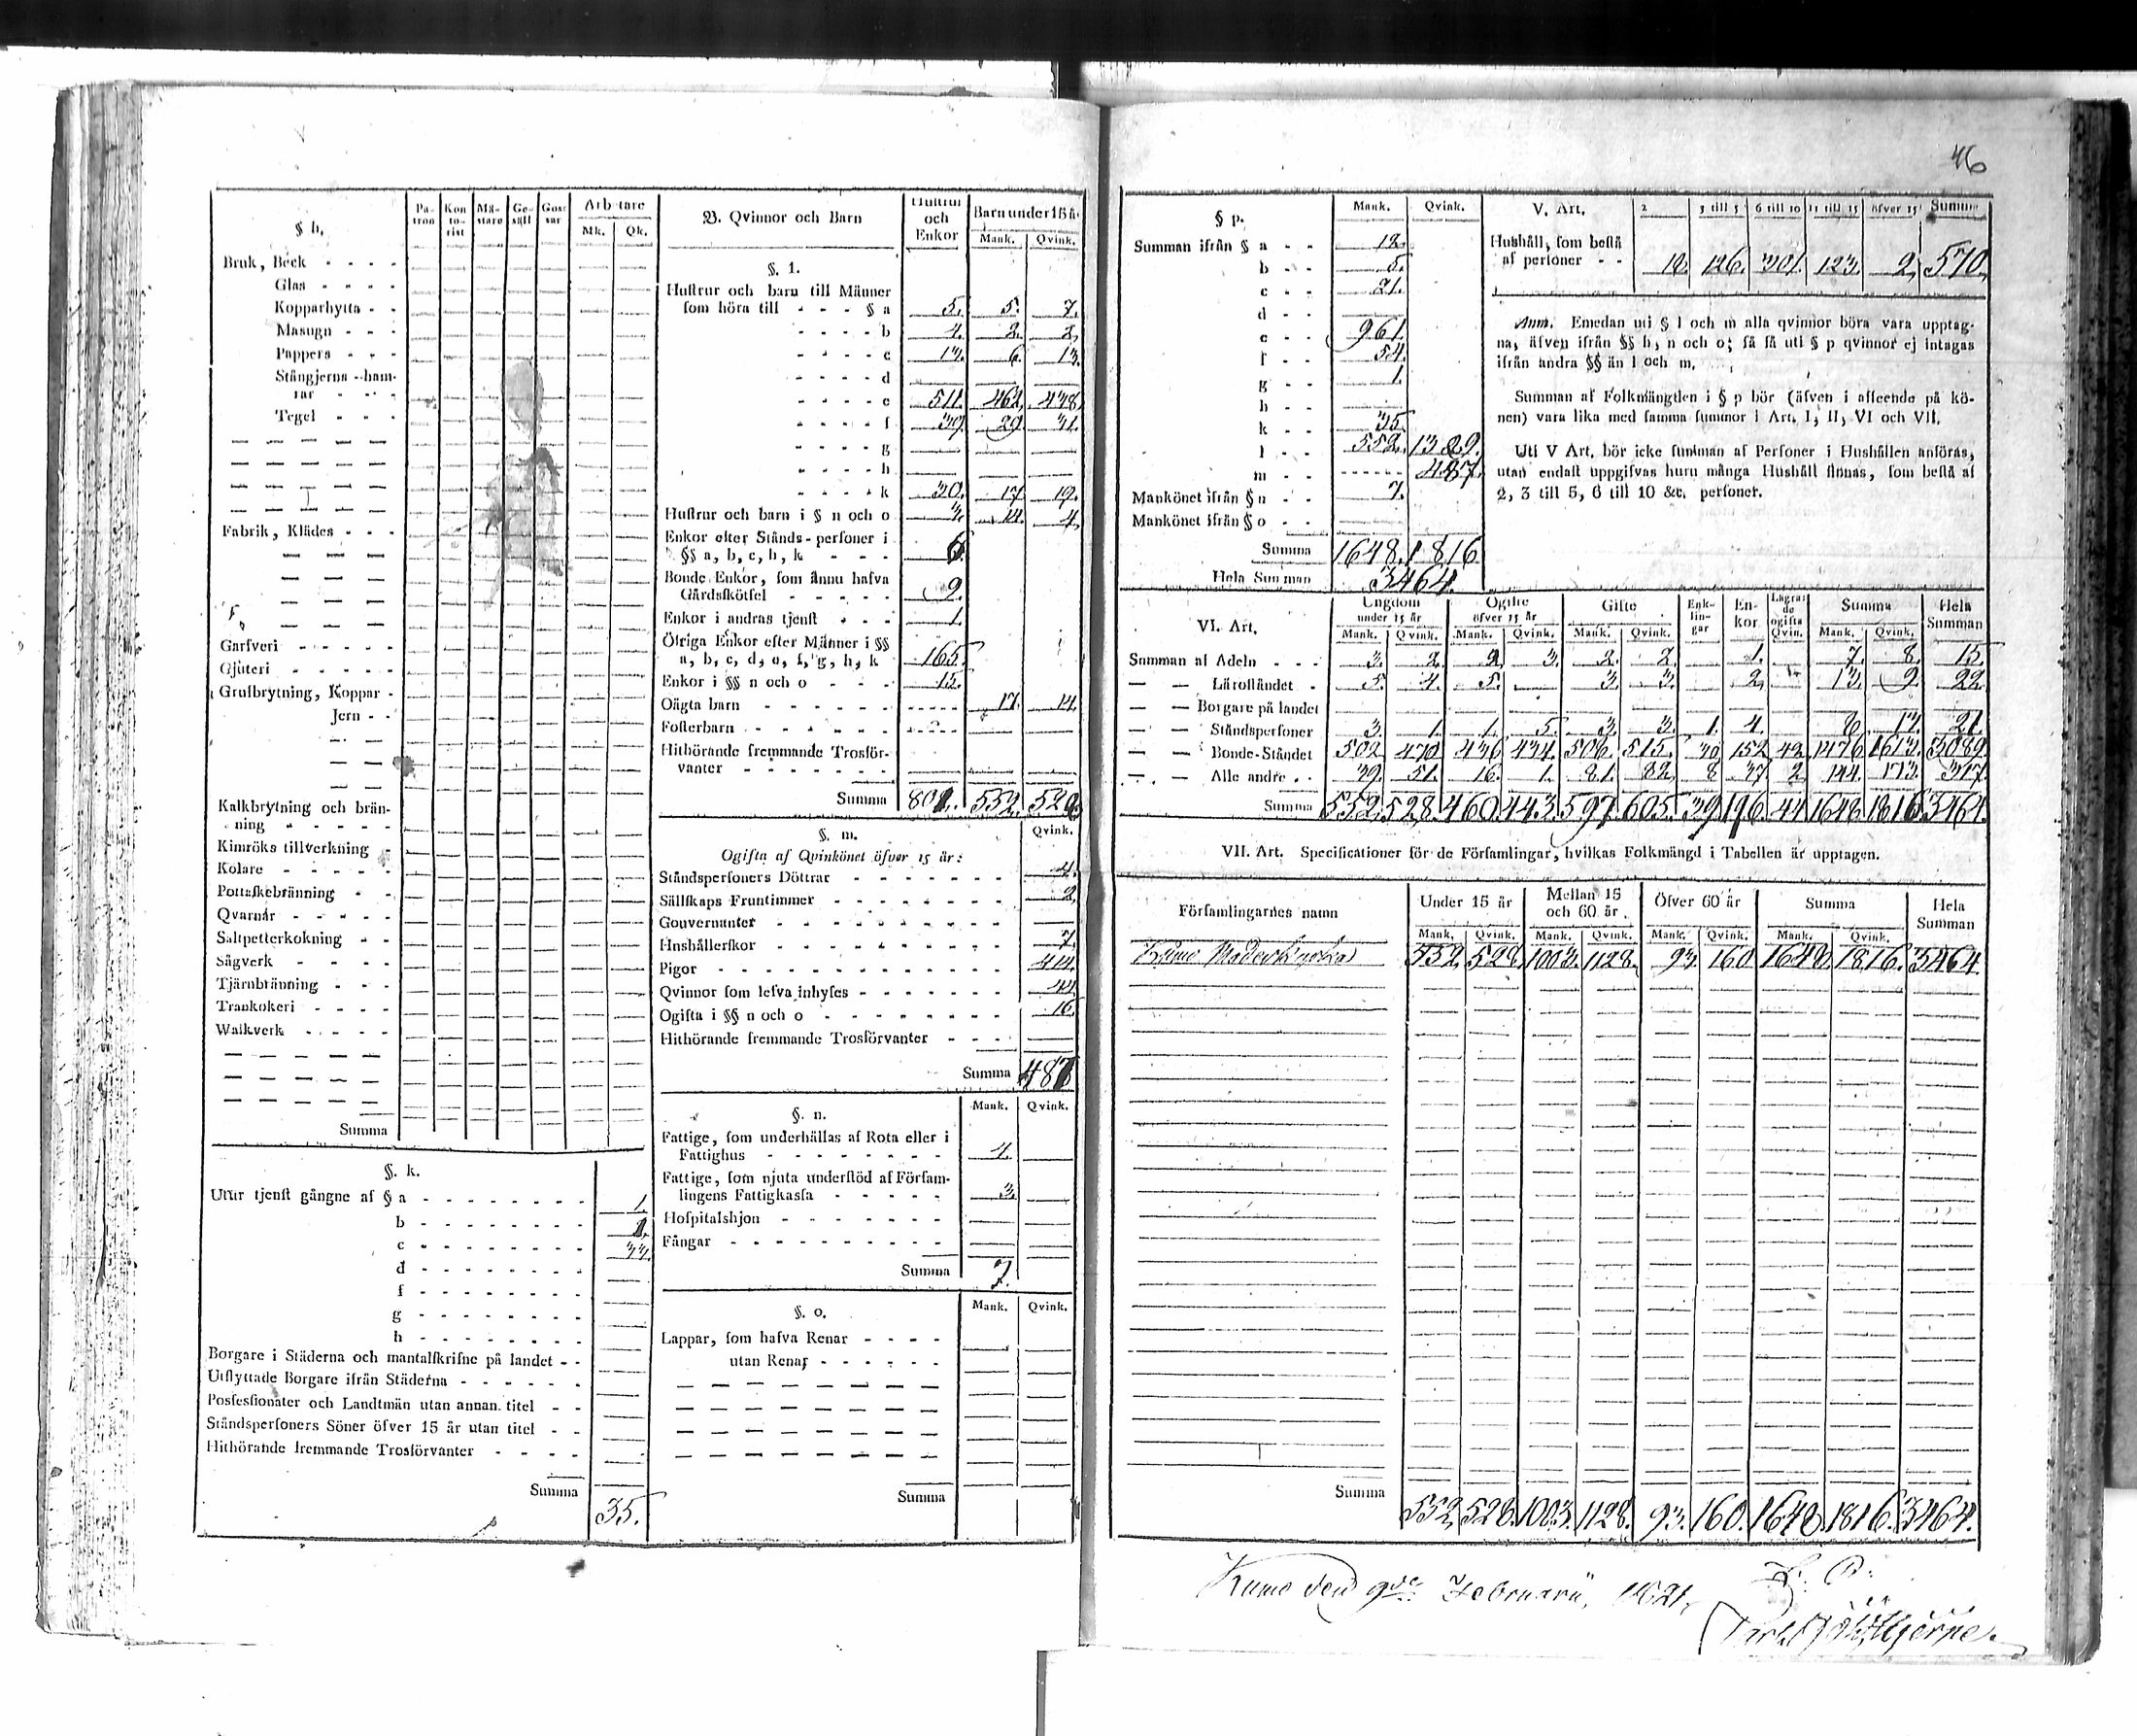 46
§ h.
Pa- tron
Kon to- rist
Mä- stare
Ge- säll
Gos- sar
Arbetare
Mk. Qk.
Bruk, Beck
Glas
Kopparhytta
Masugn
Pappers
Stångjerns-ham-
rar
Tegel
Fabrik, Klädes
Garfveri
Gjuteri
Grufbrytning, Koppar
Jern
Kalkbrytning och brän-
ning
Kimröks tillverkning
Kolare
Pottaskebränning
Qvarnar
Saltpetterkokning
Sågverk
Tjärnbränning
Trankokeri
Walkverk
Summa
§. k.
Utur tjenst gångne af § a 1.
b 1.
c 33.
d
f
g
h
Borgare i Städerna och mantalskrifne på landet
Utflyttade Borgare ifrån Städerna
Possessionater och Landtmän utan annan titel
Ståndspersoners Söner öfver 15 år utan titel
Hithörande fremmande Trosförvanter
Summa 35.
B. Qvinnor och Barn
Hustrur och Enkor
Barn under 15 år
Mank. Qvink.
§. 1.
Hustrur och barn till Männer
som höra till § a 5. 5. 7.
b 4. 2. 2.
c 13. 6. 13.
d
e 511. 462. 438.
f 39. 29. 31.
g
h
k 30. 17. 19.
Hustrur och barn i § n och o 3. 14. 4.
Enkor efter Stånds-personer i
§§ a, b, c, h, k 6.
Bonde Enkor, som ännu hafva
Gårdsskötsel 9.
Enkor i andras tjenst 1.
Öfriga Enkor efter Männer i §§
a, b, c, d, e, f, g, h, k 165.
Enkor i §§ n och o 15.
Oägta barn 17. 14.
Fosterbarn
Hithörande fremmande Trosför-
vanter
Summa 801. 552. 528.
§. m.
Qvink.
Ogifta af Qvinkönet öfver 15 år:
Ståndspersoners Döttrar 4.
Sällskaps Fruntimmer 2.
Gouvernanter
Hushållerskor 7.
Pigor 414.
Qvinnor som lefva inhyses 44.
Ogifta i §§ n och o 16.
Hithörande fremmande Trosförvanter
Summa 487
§. n.
Mank. Qvink.
Fattige, som underhållas af Rota eller i
Fattighus 4.
Fattige, som njuta understöd af Försam-
lingens Fattigkassa 3.
Hospitalshjon
Fångar
Summa 7.
§. o.
Mank. Qvink.
Lappar, som hafva Renar
utan Renar
Summa
§ p.
Mank. Qvink.
Summan ifrån § a 12.
b 5.
c 21.
d
e 961.
f 54.
g 1.
h
k 35.
l 552. 1329.
m 487.
Mankönet ifrån § n 7.
Mankönet ifrån § o
Summa 1648. 1816
Hela Summan 3464.
V. Art.
2 3 till 5 6 till 10 11 till 15 öfver 15 Summa
Hushåll, som bestå
af personer 18. 126. 301. 123. 2. 570.
Anm. Emedan uti § l och m alla qvinnor böra vara upptag-
na, äfven ifrån §§ h, n och o; så få uti § p qvinnor ej intagas
ifrån andra §§ än l och m.
Summan af Folkmängden i § p bör (äfven i afseende på kö-
nen) vara lika med samma summor i Art. I, II, VI och VII.
Uti V Art. bör icke summan af Personer i Hushållen anföras,
utan endast uppgifvas huru många Hushåll finnas, som bestå af
2, 3 till 5, 6 till 10 &c. personer.
VI. Art.
Ungdom under 15 år
Ogifte öfver 15 år
Gifte
Enk- lin- gar
En- kor
Lägrade ogifta Qvin.
Summa
Hela Summan
Mank. Qvink. Mank. Qvink. Mank. Qvink. Mank. Qvink.
Summan af Adeln 3. 2. 2. 3. 2. 2. 1. 7. 8. 15.
— — Läroståndet 5. 4. 5. 3. 3. 2. 13. 9. 22.
— — Borgare på landet
— — Ståndspersoner 3. 1. 1. 5. 3. 3. 1. 4. 8. 13. 21.
— — Bonde-Ståndet 502. 470. 436. 434. 508. 515. 30. 152. 42. 1476. 1613. 3089.
— — Alle andre 39. 51. 16. 1. 81. 82. 8. 37. 2. 144. 173. 317.
Summa 552. 528. 460. 443. 597. 605. 39. 196. 44. 1648. 1816. 3464.
VII. Art. Specificationer för de Församlingar, hvilkas Folkmängd i Tabellen är upptagen.
Församlingarnes namn
Under 15 år
Mellan 15 och 60 år
Öfver 60 år
Summa
Hela Summan
Mank. Qvink. Mank. Qvink. Mank. Qvink. Mank. Qvink.
Kumo Moderkyrka 552. 528. 1003. 1128. 93. 160. 1648. 1816. 3464
Summa 552. 528. 1003. 1128. 93. 160. 1648. 1816. 3464.
Kumo den 9de Februarii, 1821.